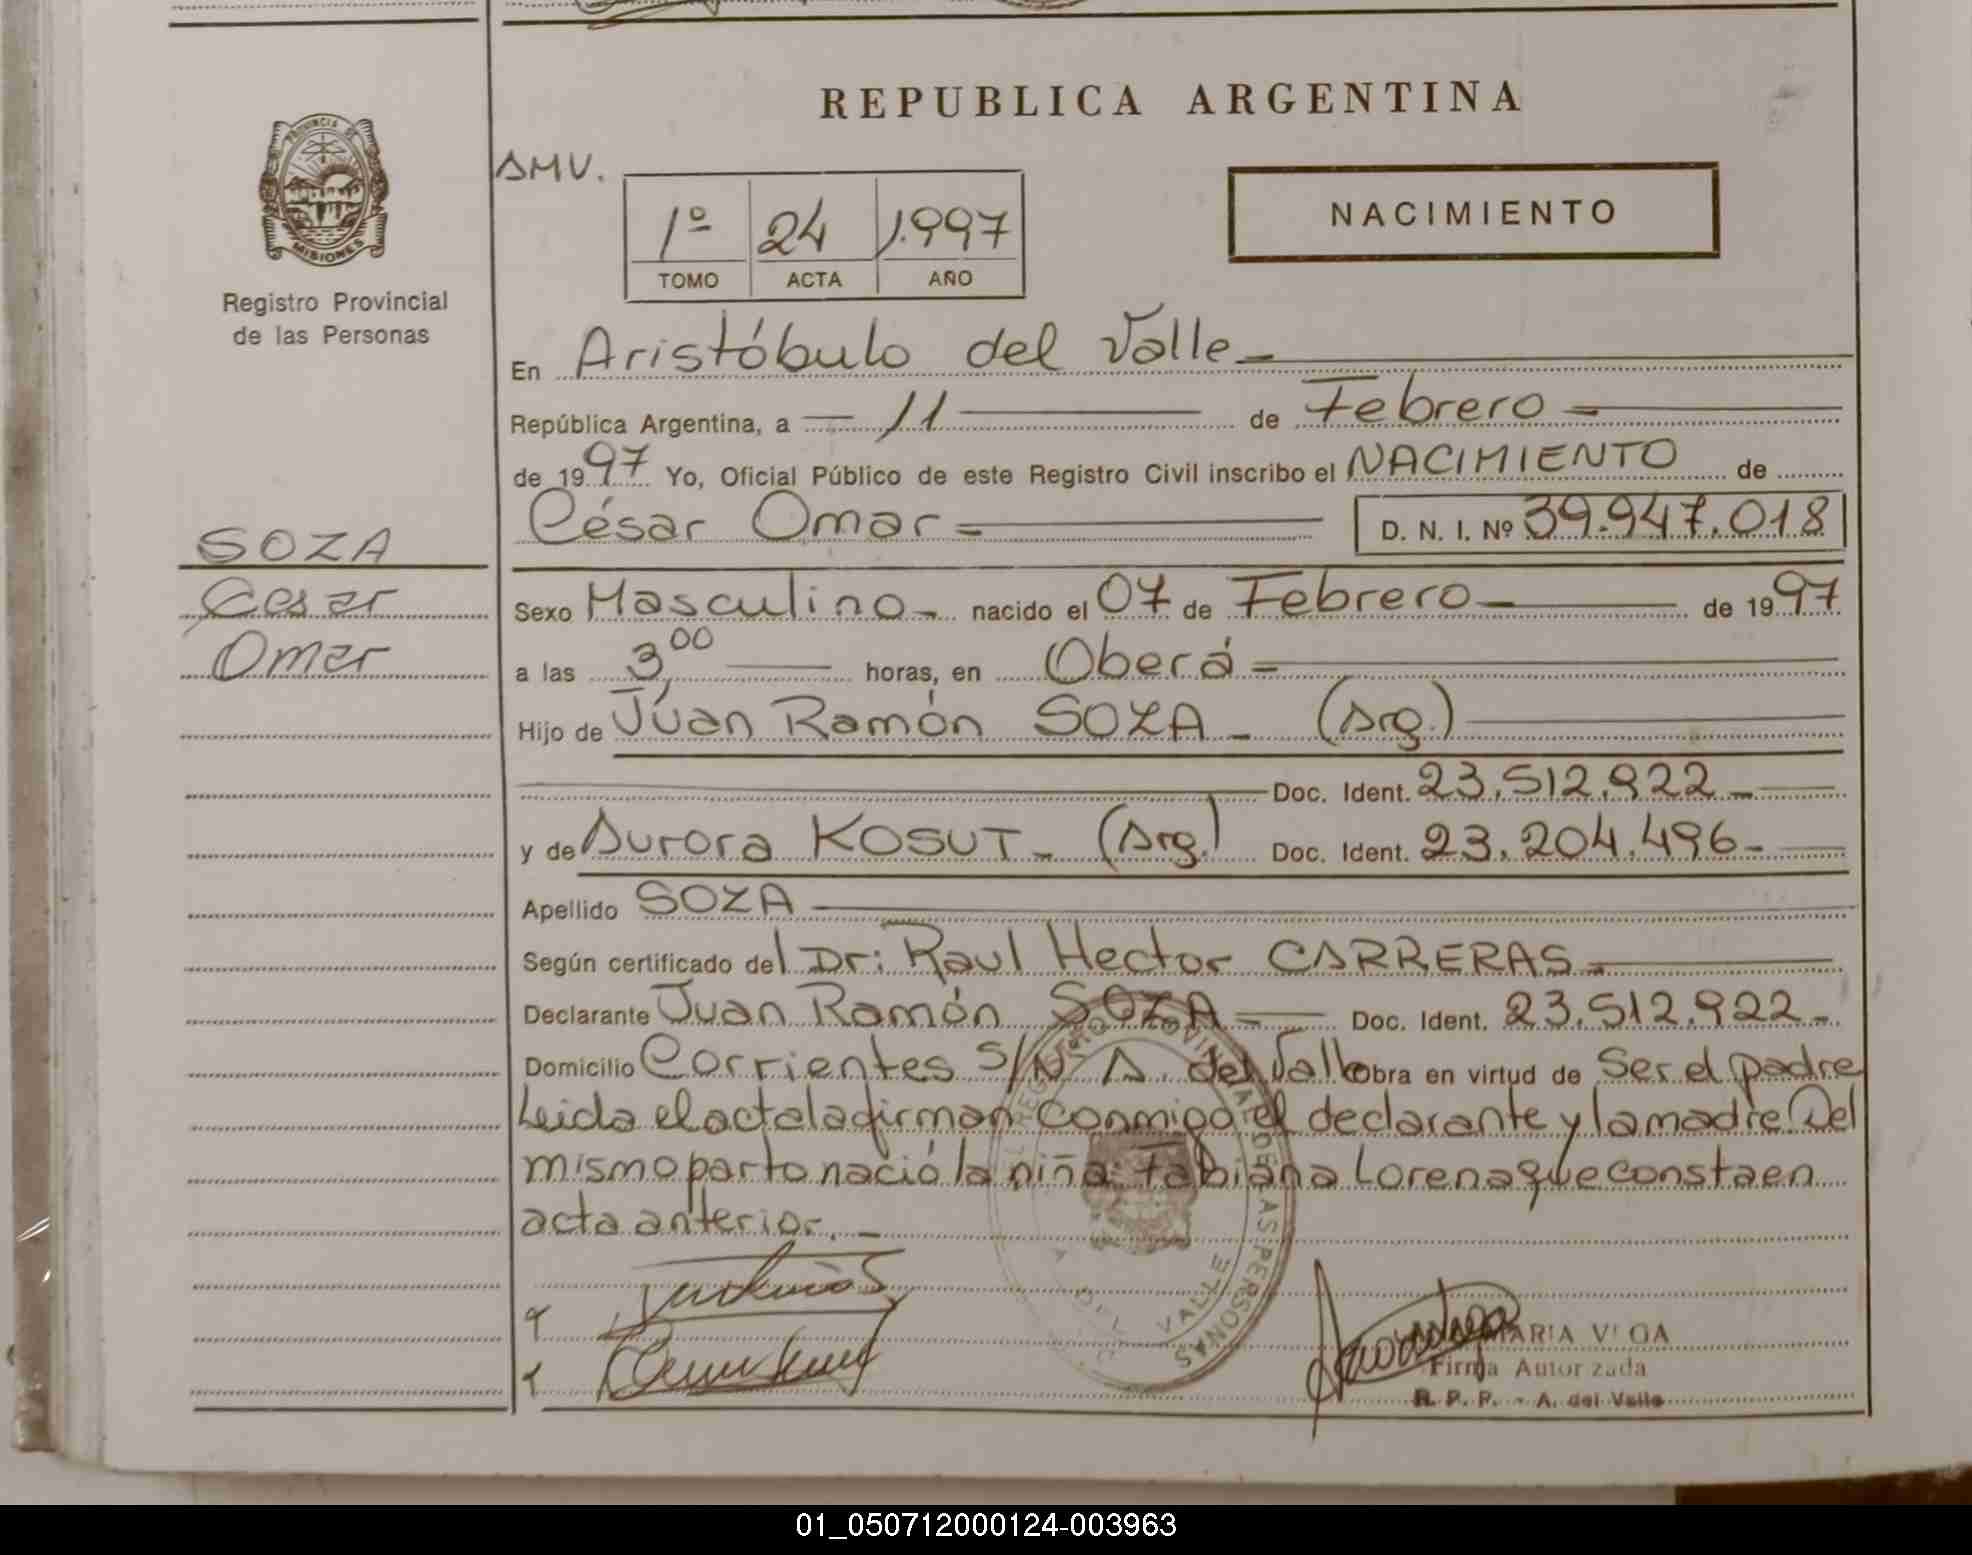 REPUBLICA ARGENTINA
PROVINCIA DE
MISIONES
Registro Provincial
de las Personas
AMV.
1º 24 1.997
TOMO ACTA AÑO
NACIMIENTO
En Aristóbulo del Valle
República Argentina, a 11 de Febrero
de 1997 Yo, Oficial Público de este Registro Civil inscribo el NACIMIENTO de
César Omar D. N. I. Nº 39.947.018
SOZA
Cesar
Omar
Sexo Masculino nacido el 07 de Febrero de 1997
a las 3,00 horas, en Oberá
Hijo de Júan Ramón SOZA (Arg.)
Doc. Ident. 23.512.922
y de Aurora KOSUT (Arg.) Doc. Ident. 23.204.496
Apellido SOZA
Según certificado del Dr: Raul Hector CARRERAS
Declarante Juan Ramón SOZA Doc. Ident. 23.512.922
Domicilio Corrientes S/N A. del Valle obra en virtud de Ser el padre
Leida el acta la firman conmigo el declarante y la madre. Del
mismo parto nació la niña: Fabiana Lorena que consta en
acta anterior.
REGISTRO PROVINCIAL DE LAS PERSONAS
A. DEL VALLE
MARIA VEGA
Firma Autorizada
R. P. P. - A. del Valle
01_050712000124-003963